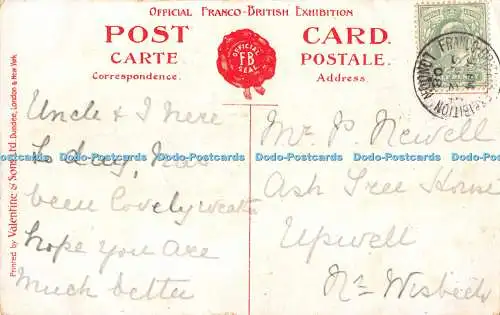 Official Franco-British Exhibition
POST CARD.
CARTE POSTALE.
Correspondence. Address.
OFFICIAL
F.B
SEAL
Printed by Valentine & Sons, Ltd. Dundee, London & New York.
Uncle & I here
to day, has
been lovely weather
hope you are
much better
Mr P. Newell
Ash Tree House
Upwell
Nr Wisbech
Dodo-Postcards Dodo-Postcards Dodo-Postcards Dodo-Postcards Dodo-Postcards
LONDON
EXHIBITION